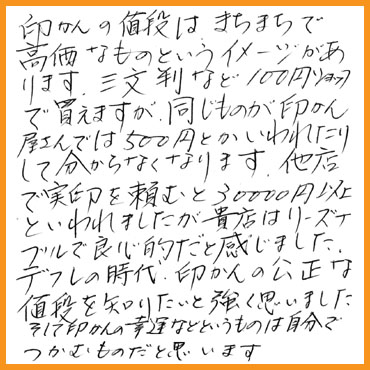 印かんの値段は、まちまちで
高価なものというイメージがあ
ります。三文判など100円ショップ
で買えますが、同じものが印かん
屋さんでは500円とかいわれたり
して分からなくなります。他店
で実印を頼むと30000円以上
といわれましたが貴店はリーズナ
ブルで良心的だと感じました。
デフレの時代、印かんの公正な
値段を知りたいと強く思いました
そして印かんの幸運などというものは自分で
つかむものだと思います